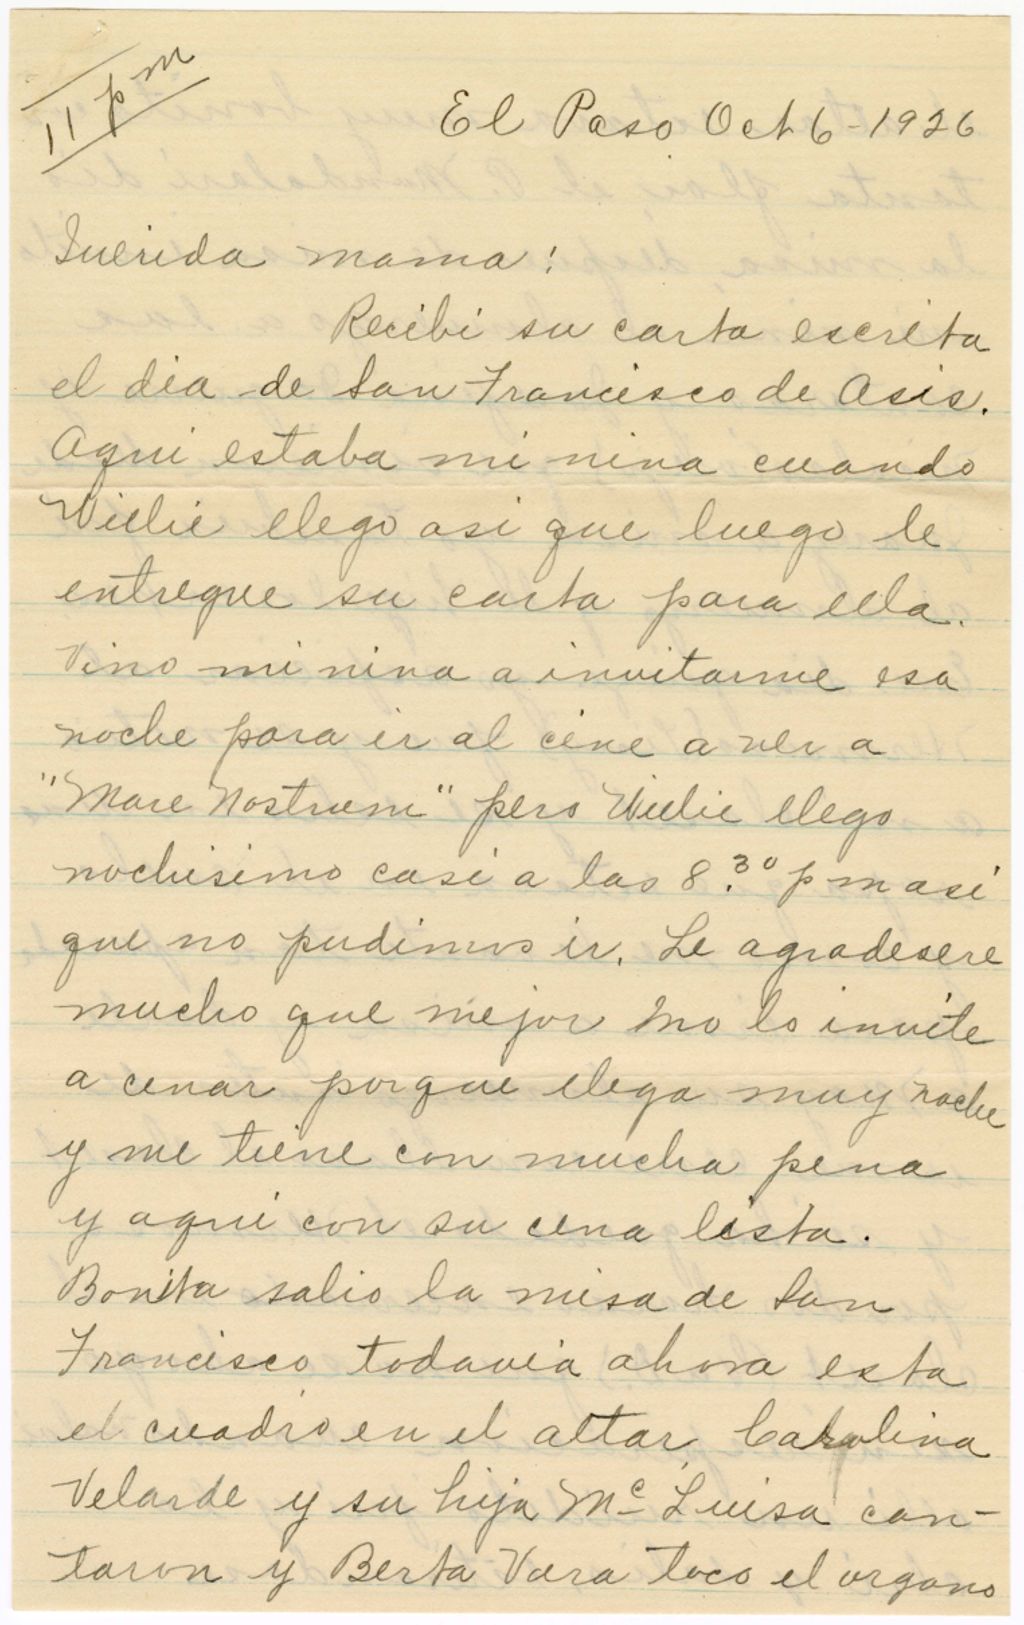 11 pm
El Paso Oct 6-1926
Querida mama:
Recibi su carta escrita
el dia de San Francisco de Asis.
Aqui estaba mi nina cuando
Willie llego asi que luego le
entregue su carta para ella.
Vino mi nina a invitarme esa
noche para ir al cine a ver a
"Mare Nostrum" pero Willie llego
nochisimo casi a las 8.30 p m asi
que no pudimos ir. Le agradesere
mucho que mejor no lo invite
a cenar porque llega muy noche
y me tiene con mucha pena
y aqui con su cena lista.
Bonita salio la misa de San
Francisco todavia ahora esta
el cuadro en el altar, Carolina
Velarde y su hija Mc Luisa can-
taron y Berta Vara toco el organo